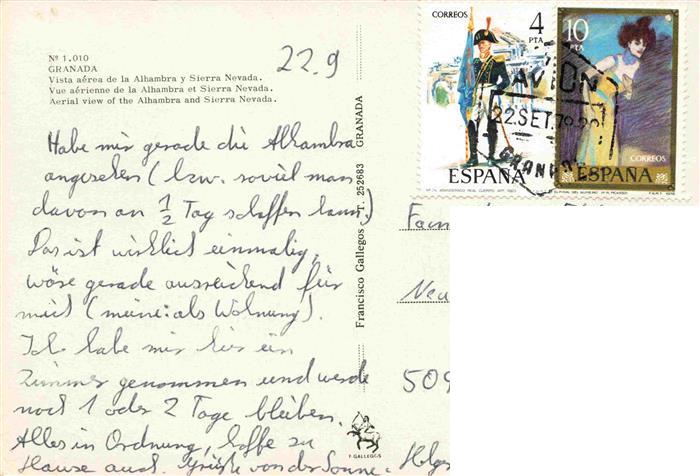 Nº 1.010
GRANADA
Vista aérea de la Alhambra y Sierra Nevada.
Vue aérienne de la Alhambra et Sierra Nevada.
Aerial view of the Alhambra and Sierra Nevada.
22.9
Habe mir gerade die Alhambra
angesehen (bzw. soviel man
davon an 1/2 Tag schaffen kann)
Das ist wirklich einmalig,
wäre gerade ausreichend für
mich (meine: als Wohnung).
Ich habe mir hier ein
Zimmer genommen und werde
noch 1 oder 2 Tage bleiben.
Alles in Ordnung, hoffe zu
Hause auch. Grüße von der Sonne - Holger
Francisco Gallegos - T. 252683 GRANADA
F. GALLEGOS
CORREOS
4
PTA
ESPAÑA
10
PTA
CORREOS
ESPAÑA
AVION
22.SET.79
GRANADA
Fam
Neu
509